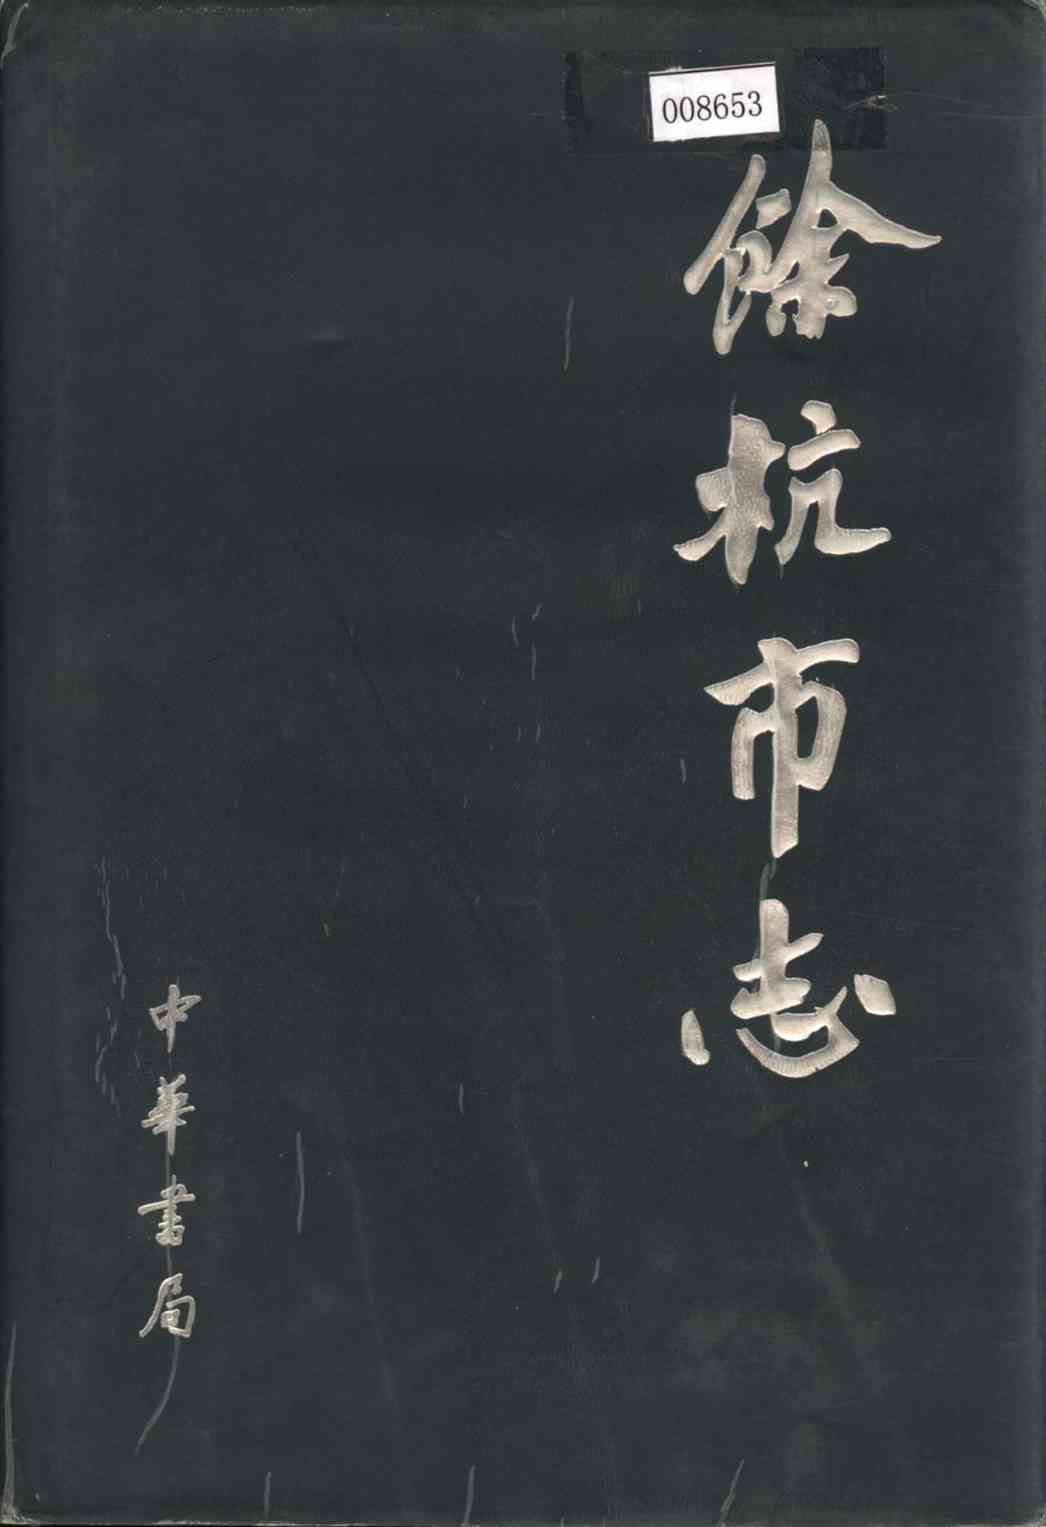 008653
餘杭市志
中華書局